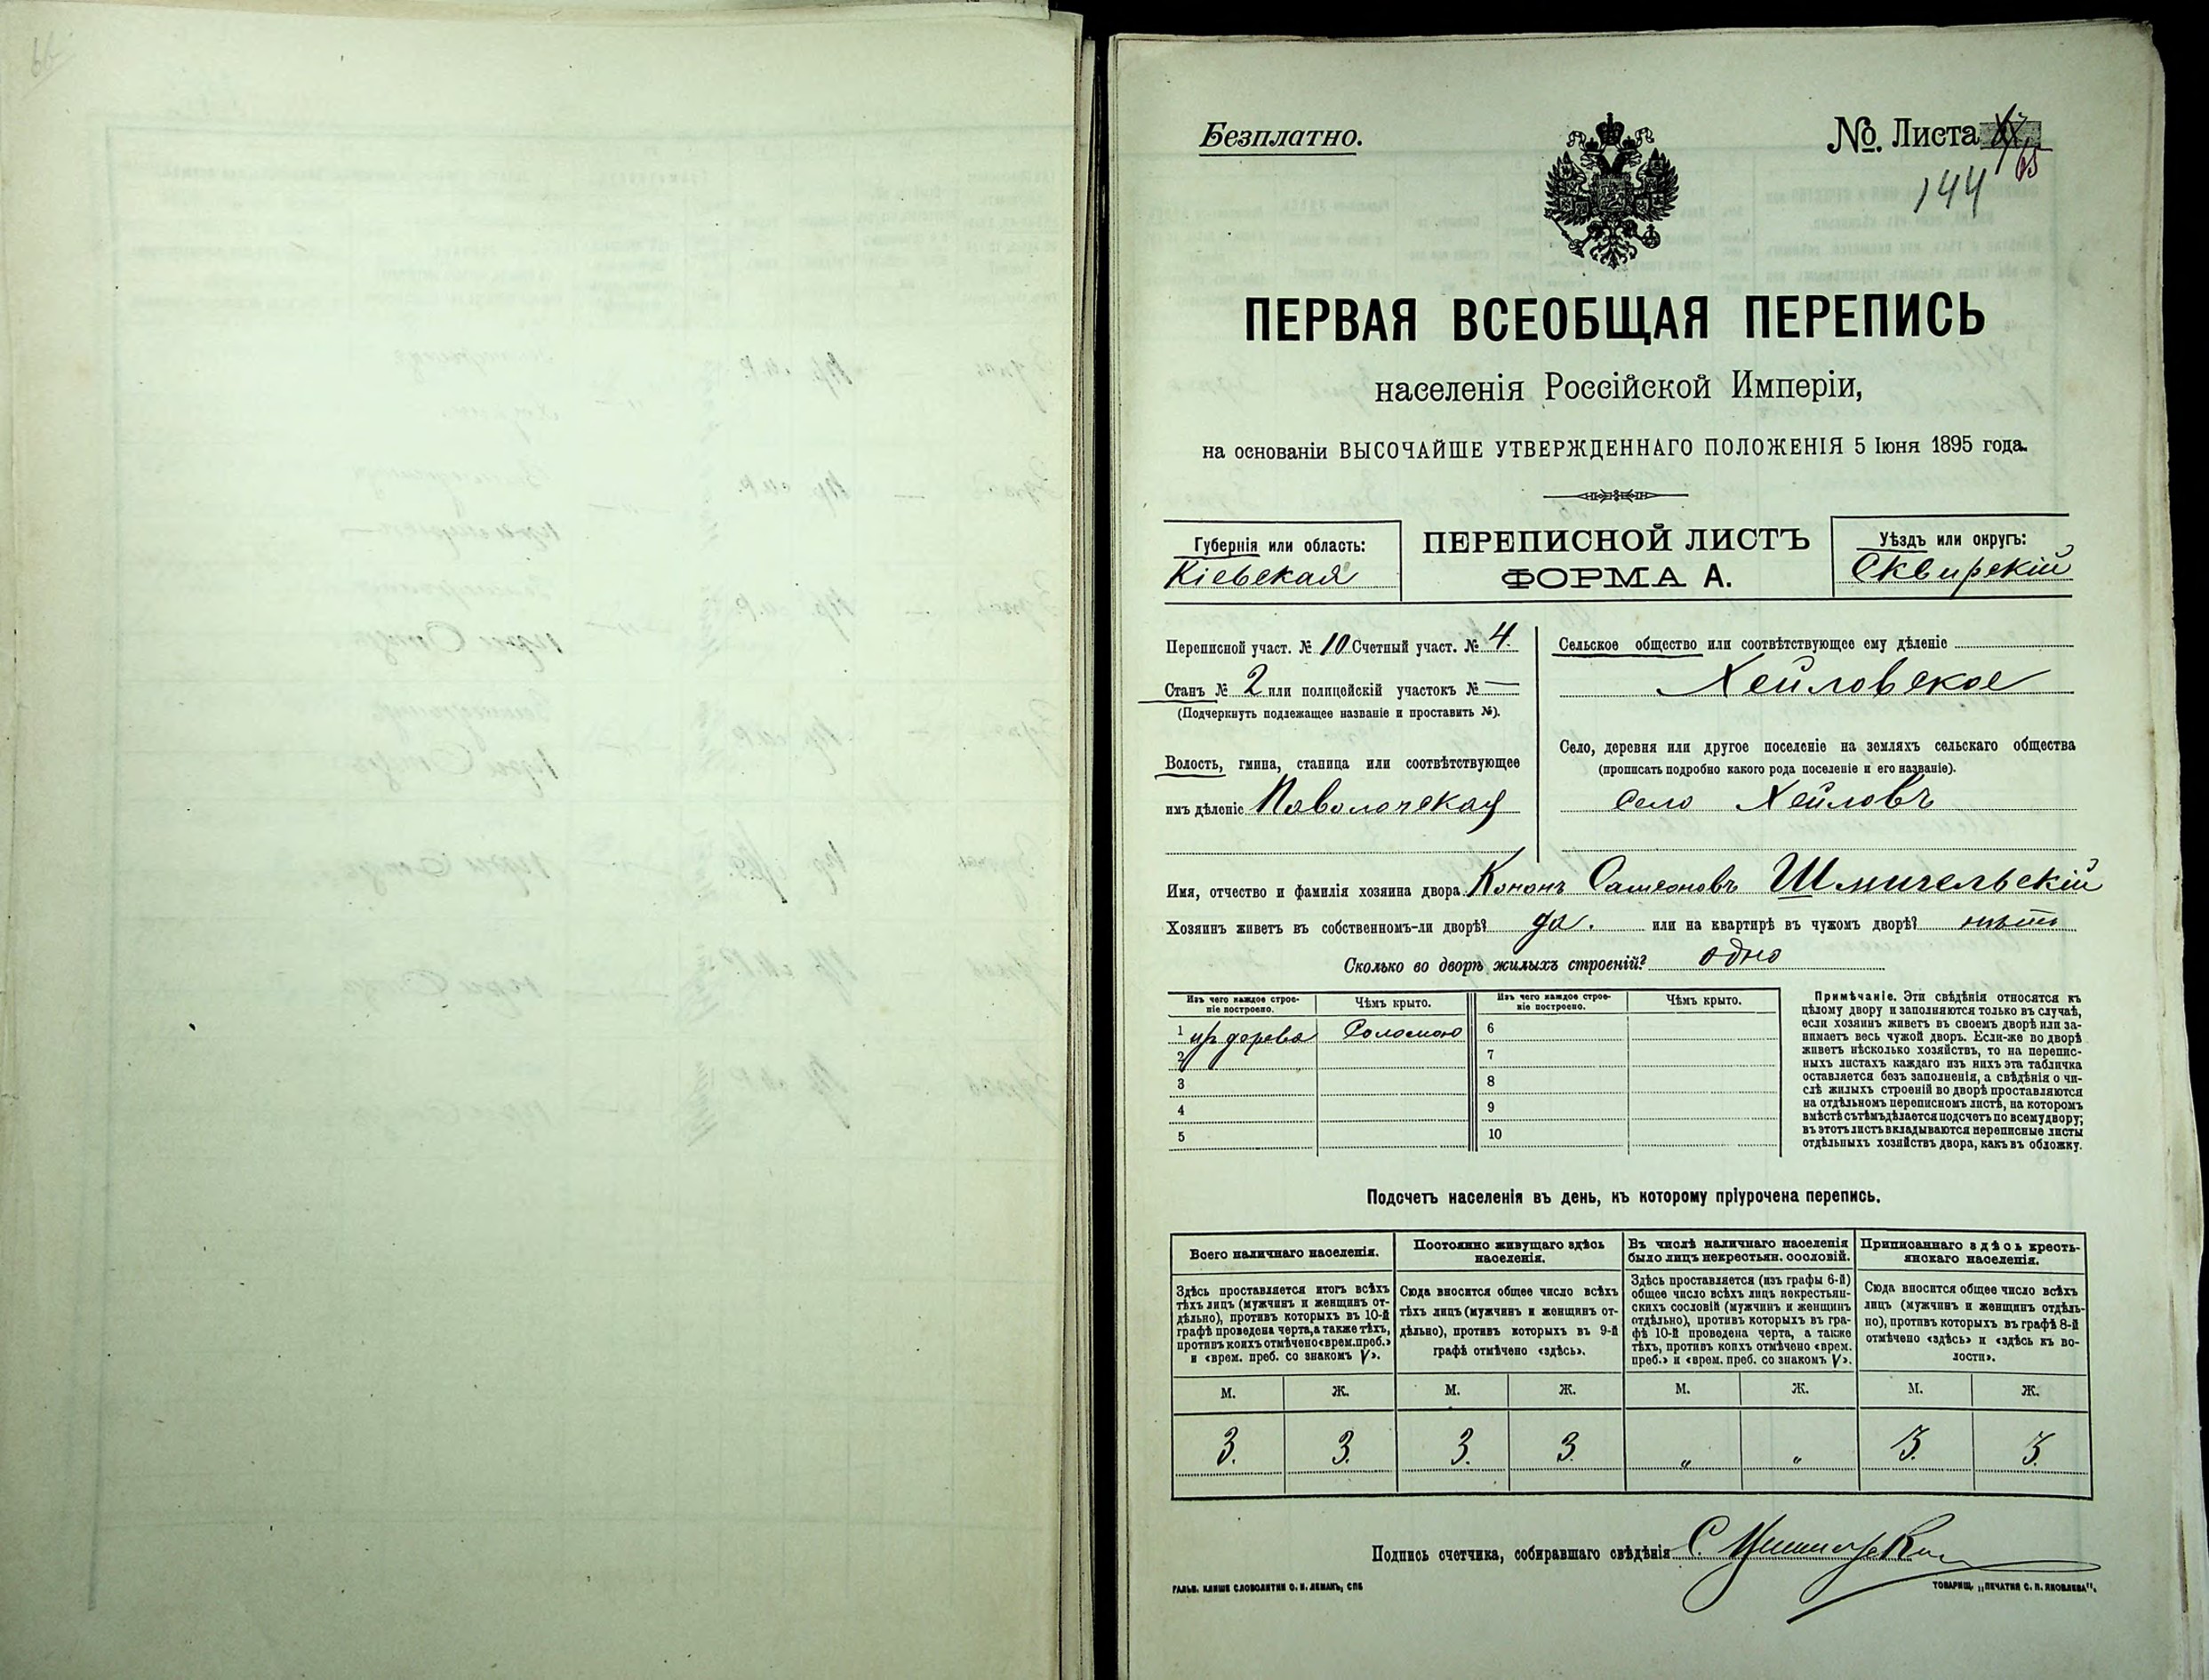 66
Безплатно.
№. Листа
65
144
ПЕРВАЯ ВСЕОБЩАЯ ПЕРЕПИСЬ
населенія Россійской Имперіи,
на основаніи ВЫСОЧАЙШЕ УТВЕРЖДЕННАГО ПОЛОЖЕНІЯ 5 Іюня 1895 года.
Губернія или область:
Кіевская
ПЕРЕПИСНОЙ ЛИСТЪ
ФОРМА А.
Уѣздъ или округъ:
Сквирскій
Переписной участ. № 10 Счетный участ. № 4.
Станъ № 2 или полицейскій участокъ № —
(Подчеркнуть подлежащее названіе и проставить №).
Волость, гмина, станица или соотвѣтствующее
имъ дѣленіе Паволочская
Сельское общество или соотвѣтствующее ему дѣленіе
Хейловское
Село, деревня или другое поселеніе на земляхъ сельскаго общества
(прописать подробно какого рода поселеніе и его названіе).
село Хейловъ
Имя, отчество и фамилія хозяина двора Кононъ Самсоновъ Шмигельскій
Хозяинъ живетъ въ собственномъ-ли дворѣ? да. или на квартирѣ въ чужомъ дворѣ? нѣтъ
Сколько во дворѣ жилыхъ строеній? одно
Изъ чего каждое строе-
ніе построено.
Чѣмъ крыто.
Изъ чего каждое строе-
ніе построено.
Чѣмъ крыто.
1 изъ дерева Соломою 6
2 7
3 8
4 9
5 10
Примѣчаніе. Эти свѣдѣнія относятся къ
цѣлому двору и заполняются только въ случаѣ,
если хозяинъ живетъ въ своемъ дворѣ или за-
нимаетъ весь чужой дворъ. Если-же во дворѣ
живетъ нѣсколько хозяйствъ, то на перепис-
ныхъ листахъ каждаго изъ нихъ эта табличка
оставляется безъ заполненія, а свѣдѣнія о чи-
слѣ жилыхъ строеній во дворѣ проставляются
на отдѣльномъ переписномъ листѣ, на которомъ
вмѣстѣ съ тѣмъ дѣлается подсчетъ по всему двору;
въ этотъ листъ вкладываются переписные листы
отдѣльныхъ хозяйствъ двора, какъ въ обложку.
Подсчетъ населенія въ день, къ которому пріурочена перепись.
Всего наличнаго населенія.
Постоянно живущаго здѣсь
населенія.
Въ числѣ наличнаго населенія
было лицъ некрестьян. сословій.
Приписаннаго здѣсь кресть-
янскаго населенія.
Здѣсь проставляется итогъ всѣхъ
тѣхъ лицъ (мужчинъ и женщинъ от-
дѣльно), противъ которыхъ въ 10-й
графѣ проведена черта, а также тѣхъ,
противъ коихъ отмѣчено «врем. преб.»
и «врем. преб. со знакомъ V».
Сюда вносится общее число всѣхъ
тѣхъ лицъ (мужчинъ и женщинъ от-
дѣльно), противъ которыхъ въ 9-й
графѣ отмѣчено «здѣсь».
Здѣсь проставляется (изъ графы 6-й)
общее число всѣхъ лицъ некрестьян-
скихъ сословій (мужчинъ и женщинъ
отдѣльно), противъ которыхъ въ гра-
фѣ 10-й проведена черта, а также
тѣхъ, противъ коихъ отмѣчено «врем.
преб.» и «врем. преб. со знакомъ V».
Сюда вносится общее число всѣхъ
лицъ (мужчинъ и женщинъ отдѣль-
но), противъ которыхъ въ графѣ 8-й
отмѣчено «здѣсь» и «здѣсь къ во-
лости».
М. Ж. М. Ж. М. Ж. М. Ж.
3. 3. 3. 3 „ „ 3. 3.
Подпись счетчика, собиравшаго свѣдѣнія С.
ГАЛЬВ. КЛИШЕ СЛОВОЛИТНИ О. И. ЛЕМАНЪ, СПБ
ТОВАРИЩ. „ПЕЧАТНЯ С. П. ЯКОВЛЕВА".